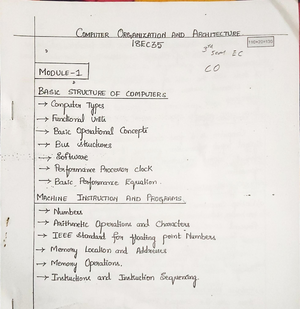 COMPUTER ORGANIZATION AND ARCHITECTURE
18EC35
3rd Sem EC
CO
MODULE-1
BASIC STRUCTURE OF COMPUTERS
→ Computer Types
→ Functional units
→ Basic Operational Concepts
→ Bus structures
→ Software
→ Performance Processor clock
→ Basic Performance Equation.
MACHINE INSTRUCTION AND PROGRAMS
→ Numbers
→ Arithmetic Operations and Characters
→ IEEE Standard for floating point Numbers
→ Memory Location and Addresses
→ Memory Operations.
→ Instructions and Instruction Sequencing.